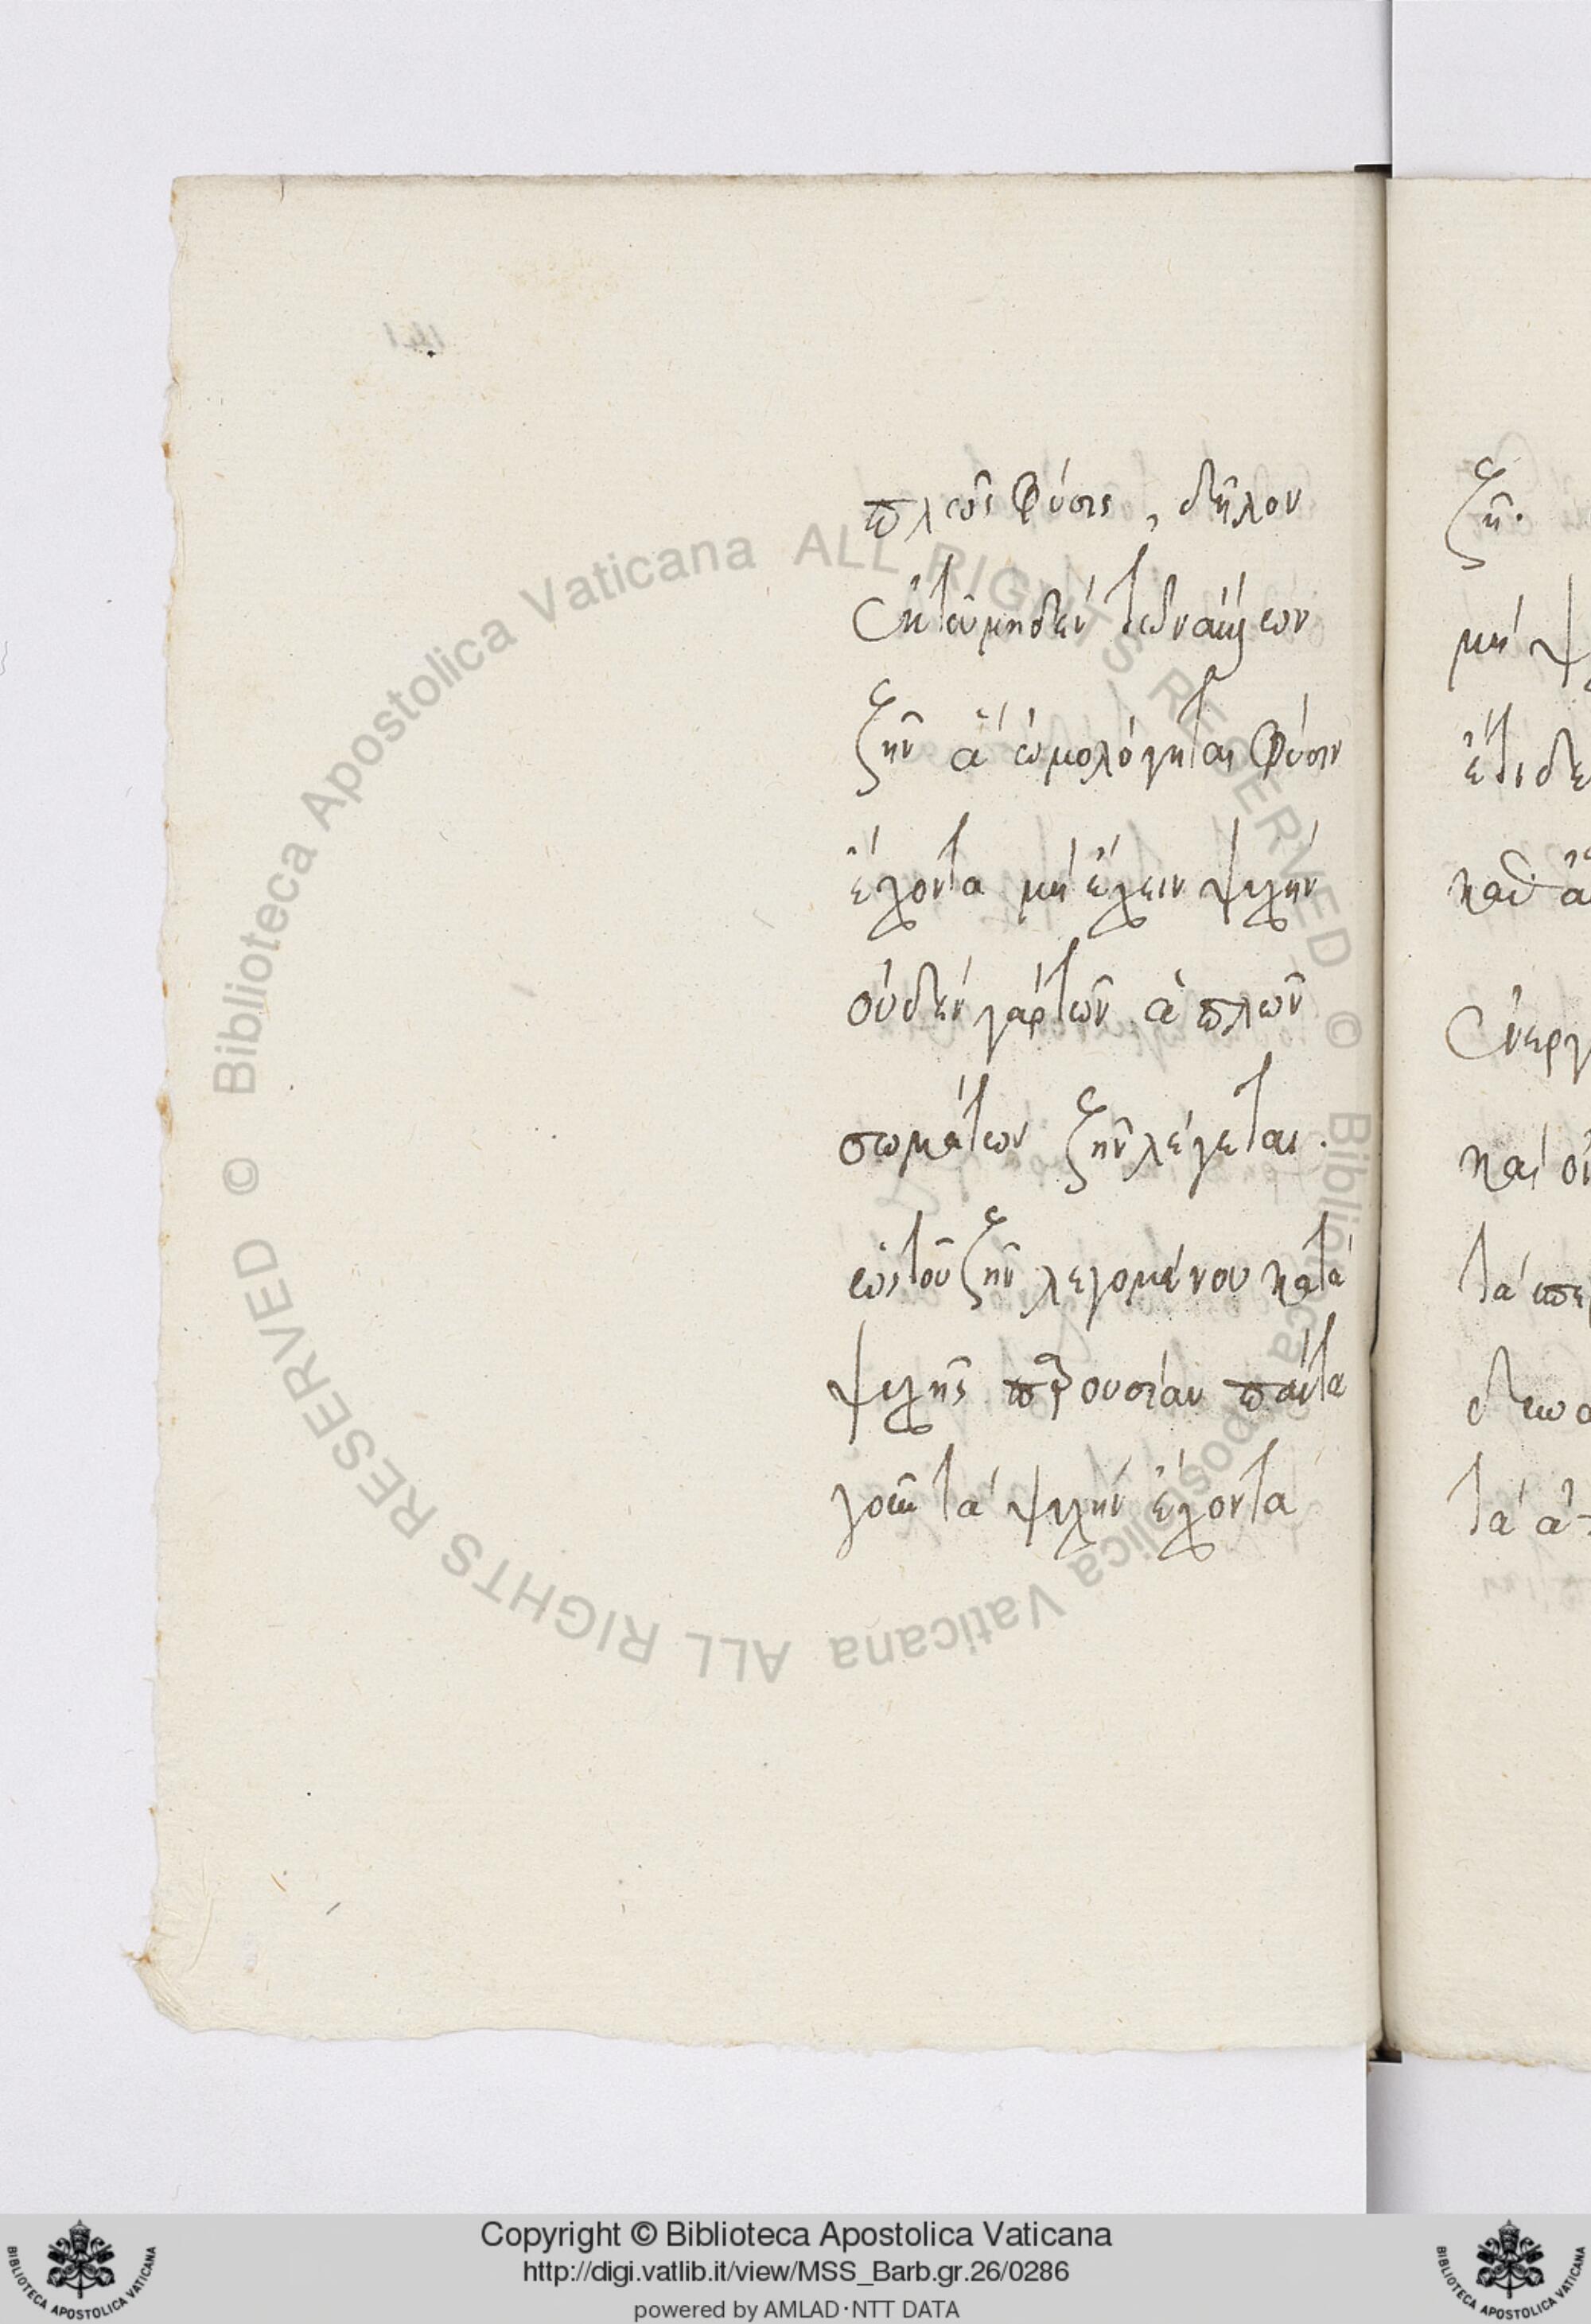 πλῶς φύσις, δῆλον
ἐκ τοῦ μηδὲν τεθνάναι τῶν
ζῆν ἃ ὡμολόγηται φύσιν
ἔχοντα μὴ ἔχειν ψυχήν
οὐδὲν γὰρ τῶν ἁπλῶν
σωμάτων ζῆν λέγεται.
ὡς τοῦ ζῆν λεγομένου κατὰ
ψυχῆς παρουσίαν πάντα
γοῦν τὰ ψυχὴν ἔχοντα
ζῇ.
μὴ ψ
ἔτι δε
καθ
ἐνεργ
καὶ οἱ
τὰ
τὰ ἀ
Copyright © Biblioteca Apostolica Vaticana
http://digi.vatlib.it/view/MSS_Barb.gr.26/0286
powered by AMLAD·NTT DATA
© Biblioteca Apostolica Vaticana ALL RIGHTS RESERVED © Biblioteca Apostolica Vaticana ALL RIGHTS RESERVED
BIBLIOTECA APOSTOLICA VATICANA
BIBLIOTECA APOSTOLICA VATICANA